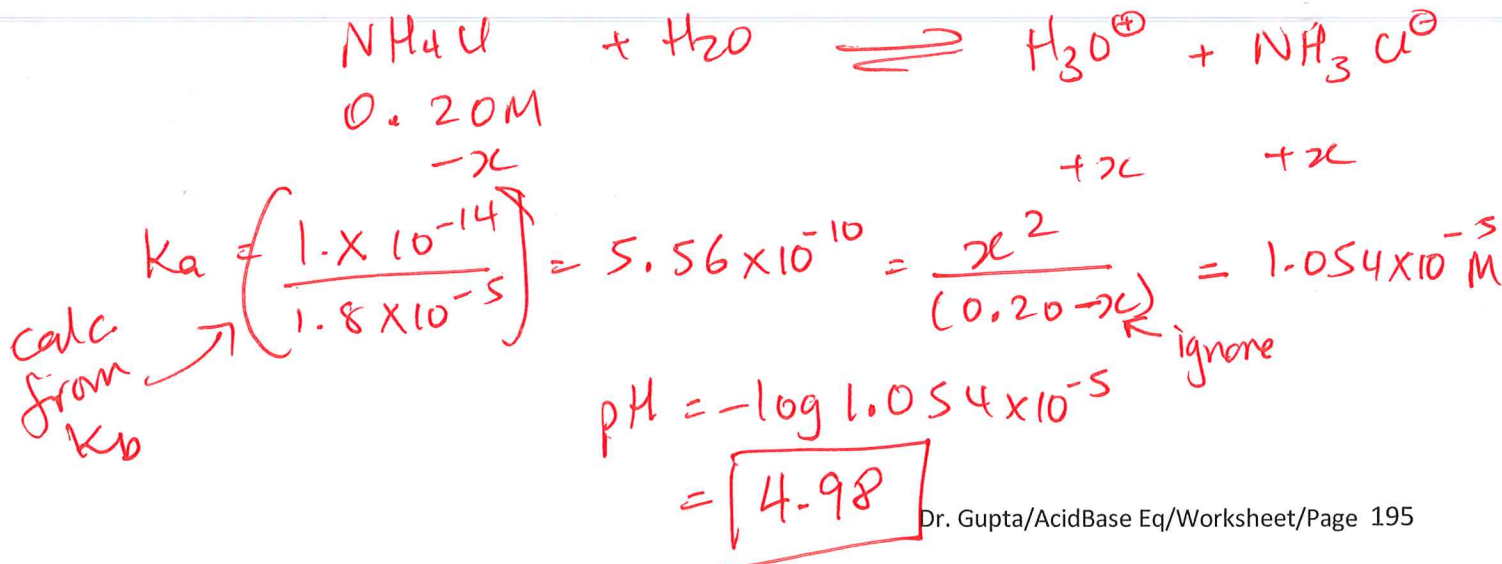 NH4Cl + H2O ⇌ H3O⊕ + NH3 Cl⊖
0.20M
-x +x +x
Ka = (1.×10^-14 / 1.8×10^-5) = 5.56×10^-10 = x^2 / (0.20-x) = 1.054×10^-5 M
calc from Kb
ignore
pH = -log 1.054×10^-5
= 4.98
Dr. Gupta/AcidBase Eq/Worksheet/Page 195